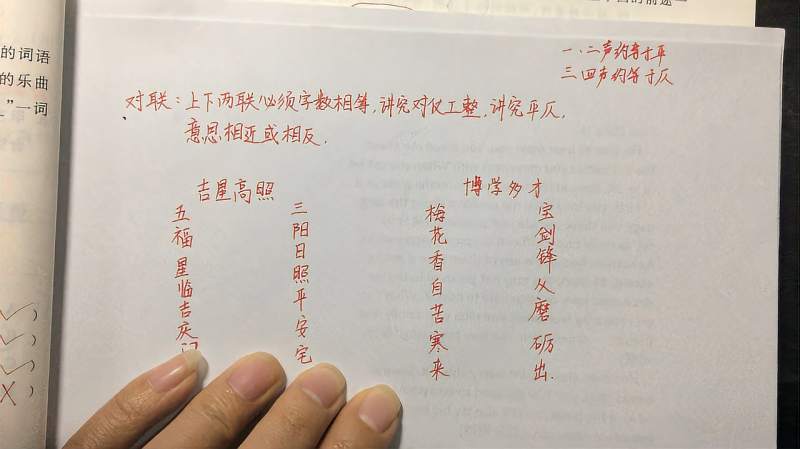 的词语
的乐曲
”一词
一、二声约等于平
三、四声约等于仄
对联：上下两联必须字数相等，讲究对仗工整，讲究平仄，
意思相近或相反.
吉星高照
三阳日照平安宅
五福星临吉庆门
博学多才
宝剑锋从磨砺出.
梅花香自苦寒来